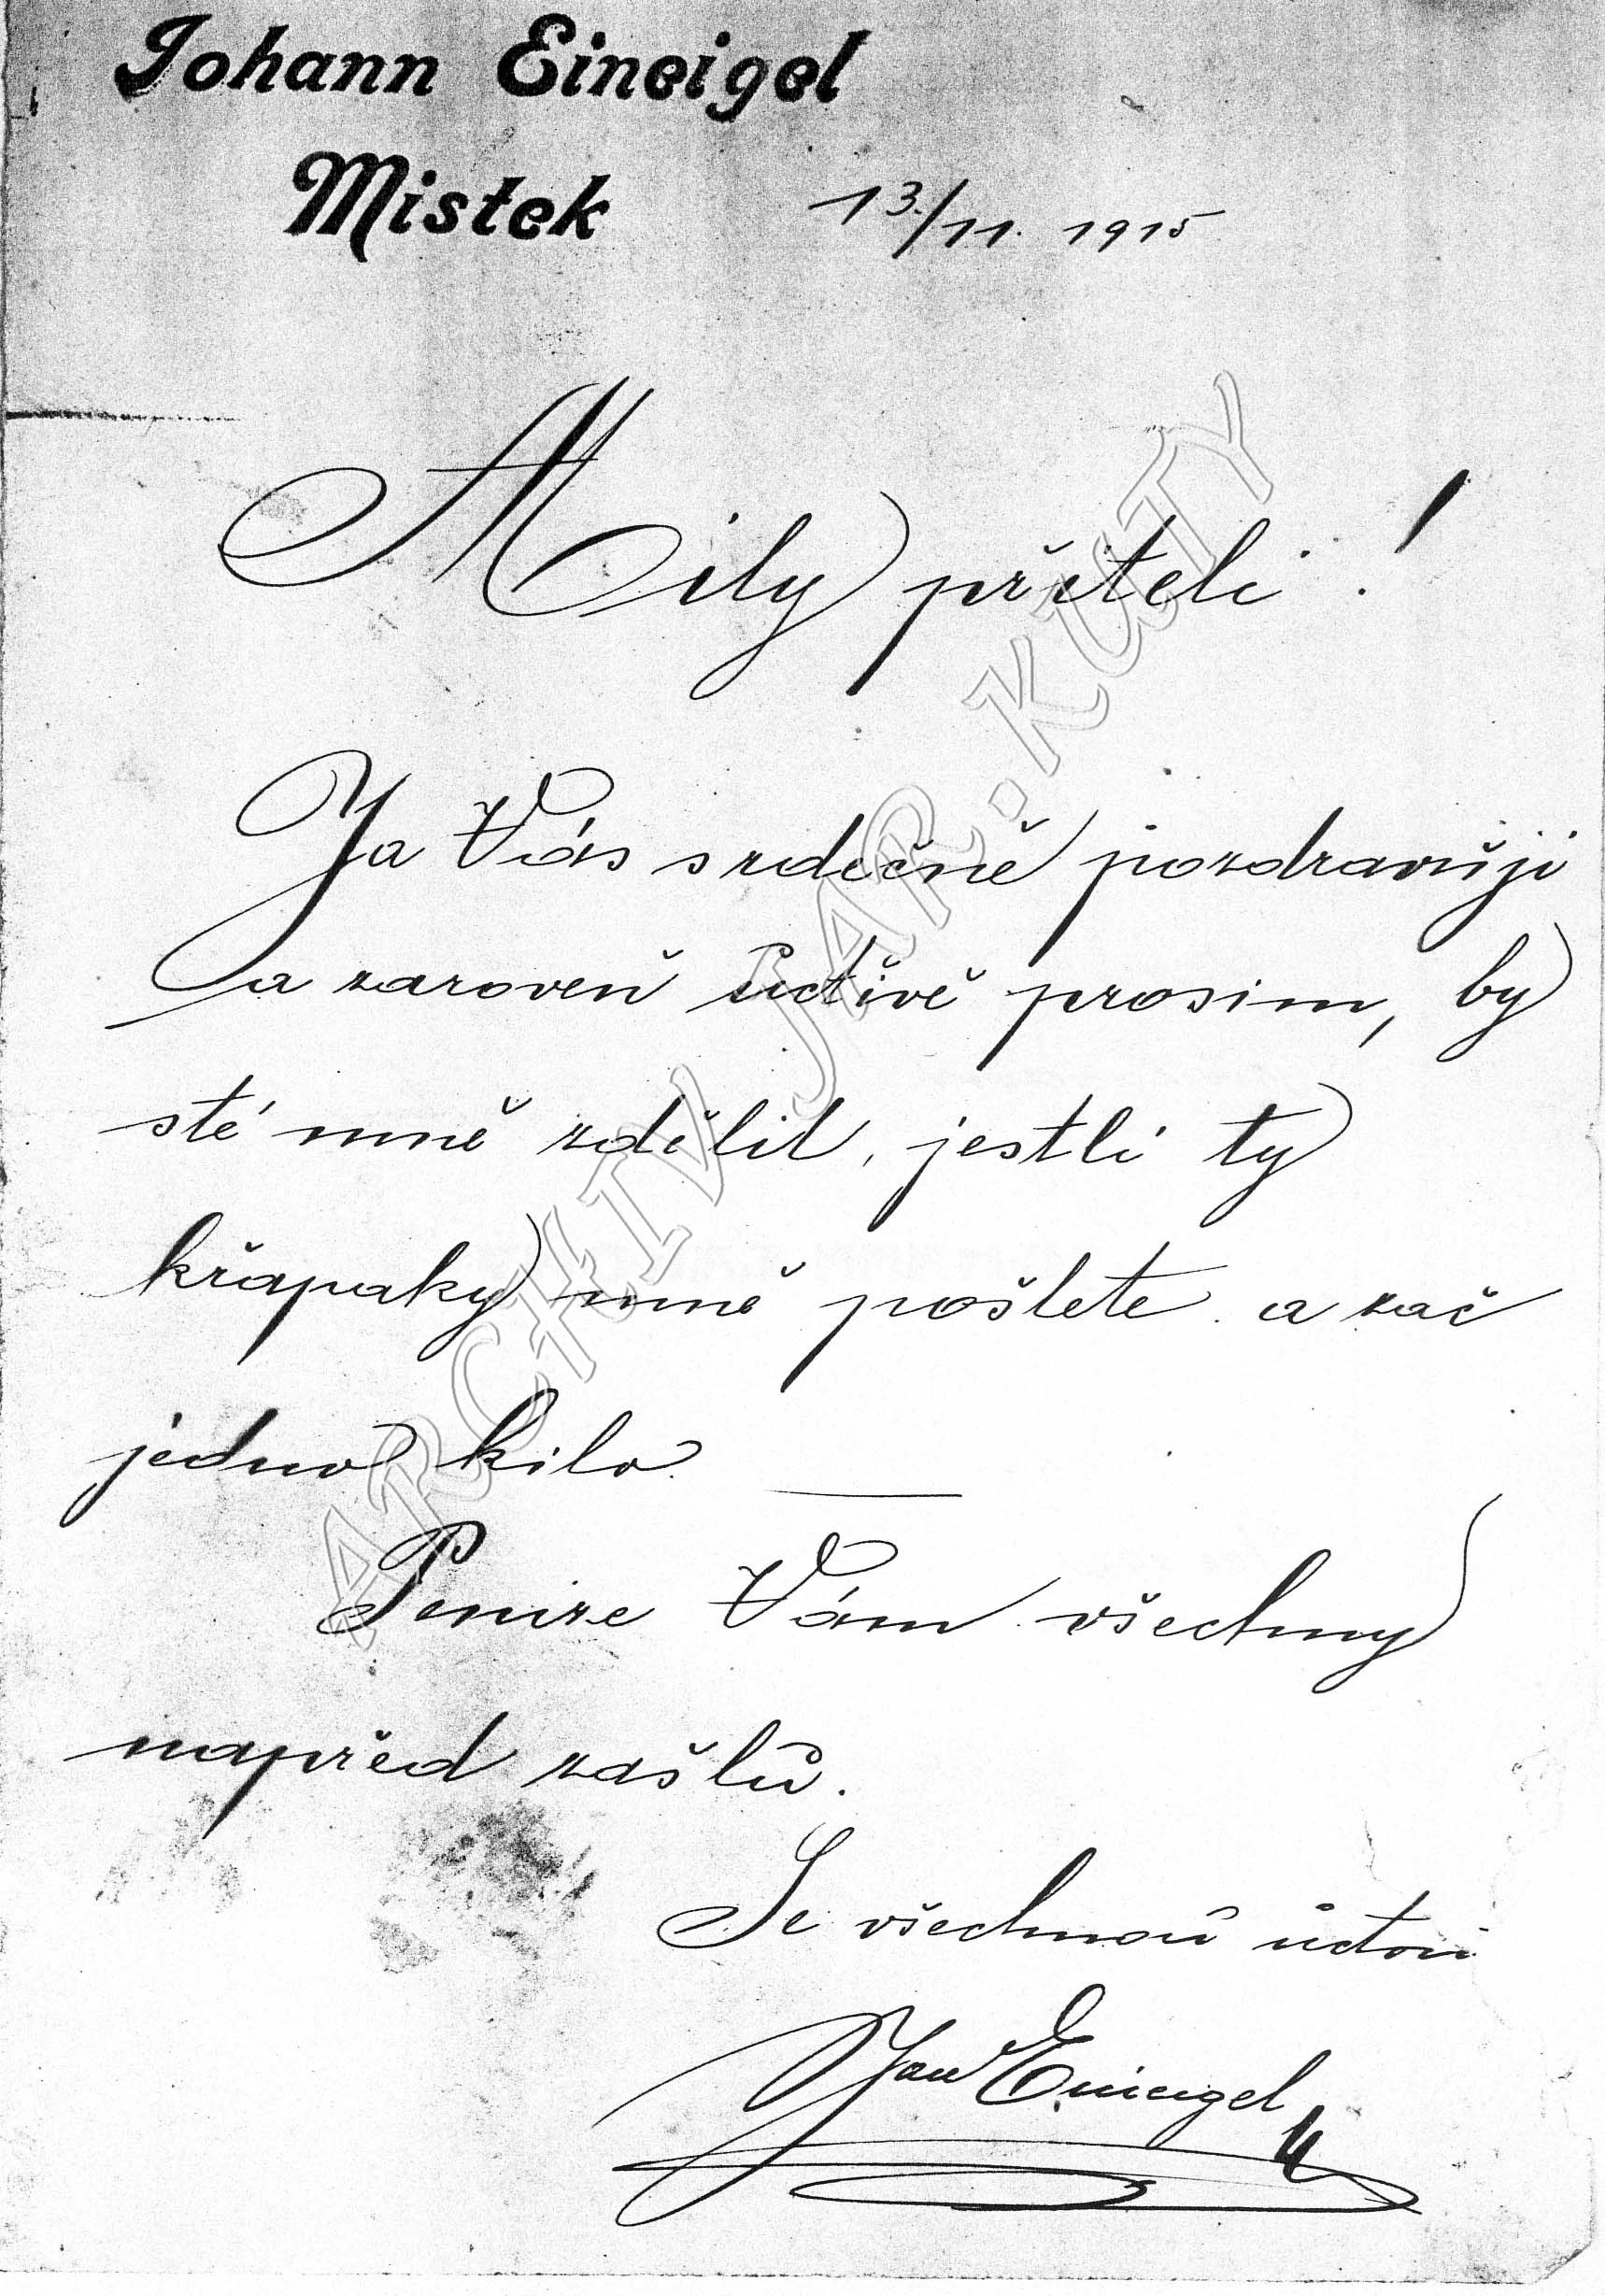 Johann Eineigel
Mistek 13./11. 1915
Mily přiteli!
Ja Vás srdečně pozdravuji
a zaroveň uctivě prosim, by
sté mně zdělil, jestli ty
křapaky mně pošlete a zač
jedno kilo.
Penize Vám všechny
napřed zašlu.
Se všechnou uctou
Jan Eineigel
ARCHIV JAR. KUTY